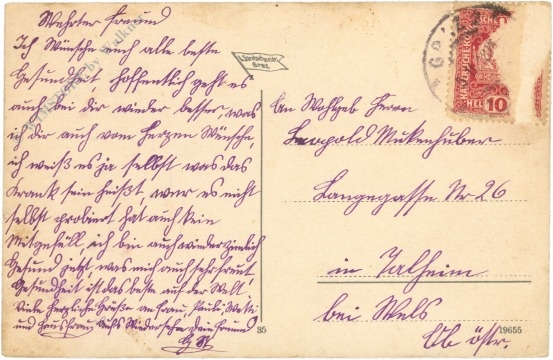 Wehrter Freund
Ich Wünsche auch alle beste
Gesundheit, hoffentlich geht es
auch bei dir wieder besser, was
ich dir auch vom Herzen Wünsche,
ich weiß es ja selbst was das
krank sein heißt, wer es nicht
selbst probiert hat auch kein
Mitgefühl, ich bin auch wieder ziemlich
Gesund jetzt, was mich auch sehr freut
Gesundheit ist das beste auf der Welt
Viele herzliche Grüße an Frau,
und Hausfrau Aufs Wiedersehen dein Freund
An Wohlgeb Herrn
Leopold Mukenhuber
Langegasse Nr 26
in Talheim
bei Wels
Ob östr.
GRAZ
HELLER 10
35
19655